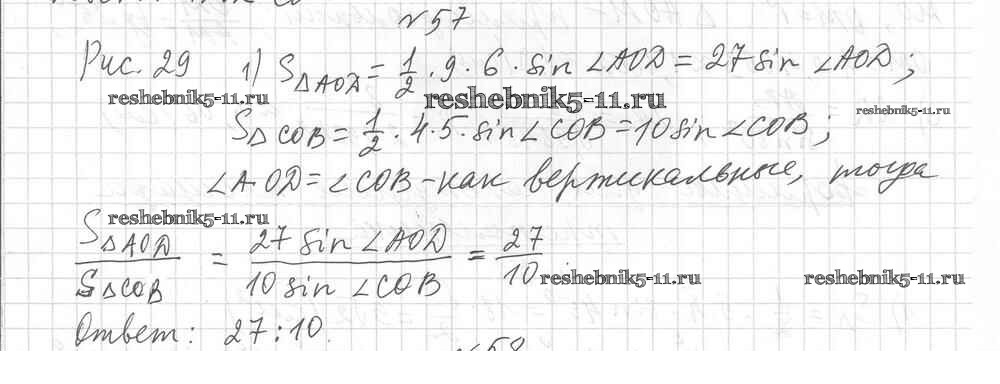 №57
Рис. 29 1) S△AOD = 1/2 · 9 · 6 · sin ∠AOD = 27 sin ∠AOD;
reshebnik5-11.ru reshebnik5-11.ru reshebnik5-11.ru
S△COB = 1/2 · 4 · 5 · sin ∠COB = 10 sin ∠COB;
∠AOD = ∠COB – как вертикальные, тогда
reshebnik5-11.ru
S△AOD/S△COB = 27 sin ∠AOD/10 sin ∠COB = 27/10
reshebnik5-11.ru reshebnik5-11.ru
Ответ: 27:10.
№58